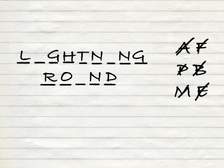 L_GHTN_NG
RO_ND
A F
P B
M E